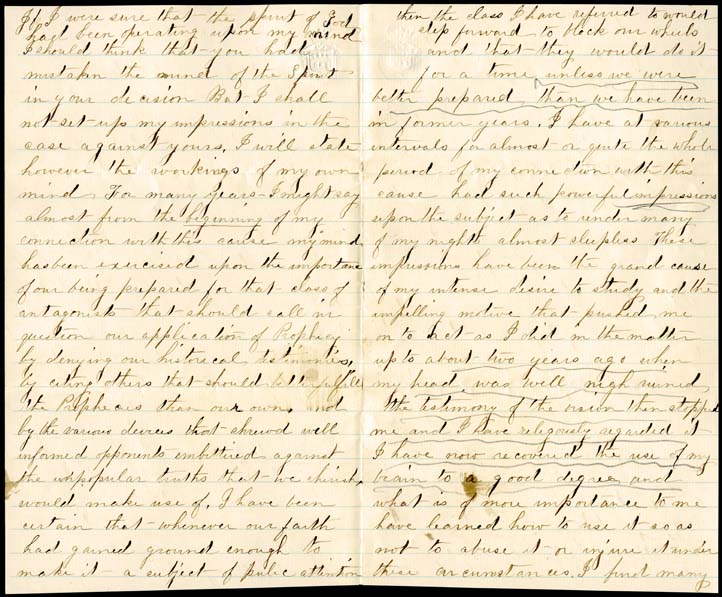 If I were sure that the spirit of God
had been operating upon my mind
I should think that you had
mistaken the mind of the Spirit
in your decision But I shall
not set up my impressions in the
case against yours, I will state
however the workings of my own
mind For many years I might say
almost from the beginning of my
connection with this cause my mind
has been exercised upon the importance
of our being prepared for that class of
antagonists that should call in
question our application of Prophecy
by denying our historical testimonies,
by citing others that should better fulfill
the Prophecies than our own, and
by the various devices that shrewd well
informed opponents embittered against
the unpopular truths that we cherish
would make use of, I have been
certain that whenever our faith
had gained ground enough to
make it a subject of public attention
then the class I have referred to would
step forward to block our wheels
and that they would do it
for a time, unless we were
better prepared than we have been
in former years. I have at various
intervals for almost or quite the whole
period of my connection with this
cause had such powerful impressions
upon the subject as to render many
of my nights almost sleepless These
impressions have been the grand cause
of my intense desire to study and the
impelling motive that pushed me
on to act as I did in the matter
up to about two years ago when
my head was well nigh ruined
the testimony of the vision then stopped
me and I have religously regarded it
I have now recovered the use of my
brain to a good degree, and
what is of more importance to me
have learned how to use it so as
not to abuse it or injure it under
these circumstances. I find many